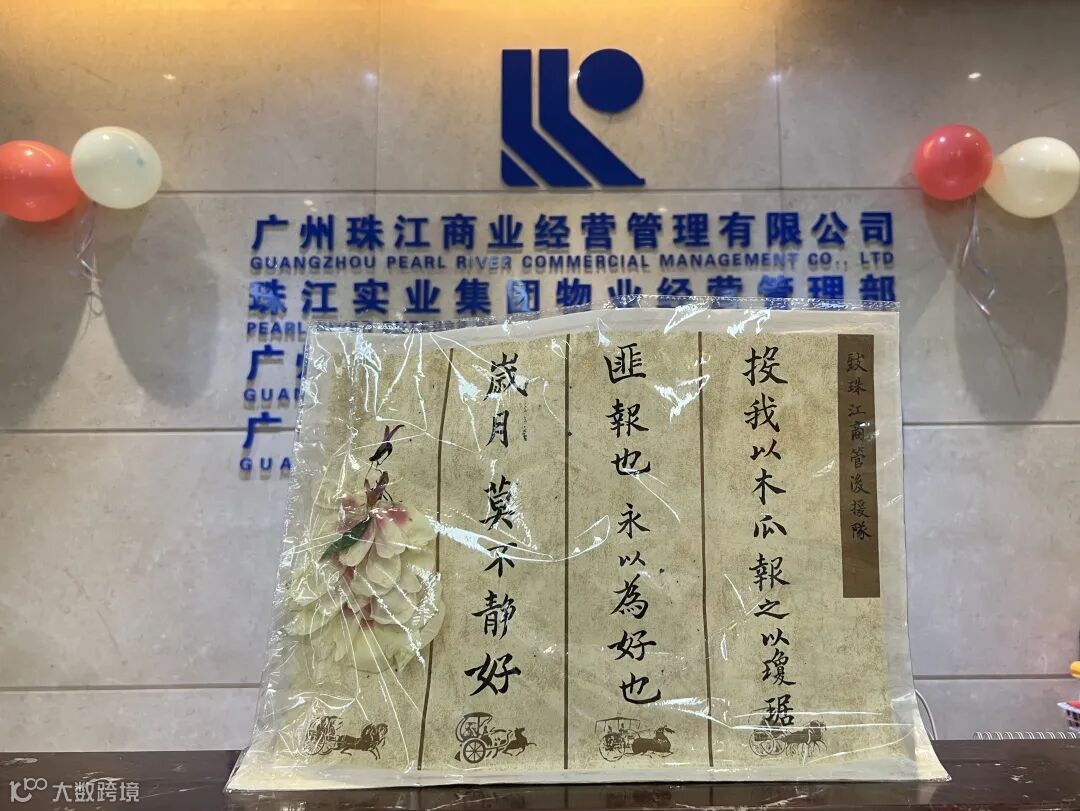 广州珠江商业经营管理有限公司
GUANGZHOU PEARL RIVER COMMERCIAL MANAGEMENT CO., LTD
珠江实业集团物业经营管理部
PEARL
广州
GUAN
广
GUA
致珠江商管後援隊
投我以木瓜報之以瓊琚
匪報也永以為好也
歲月莫不静好
大数跨境